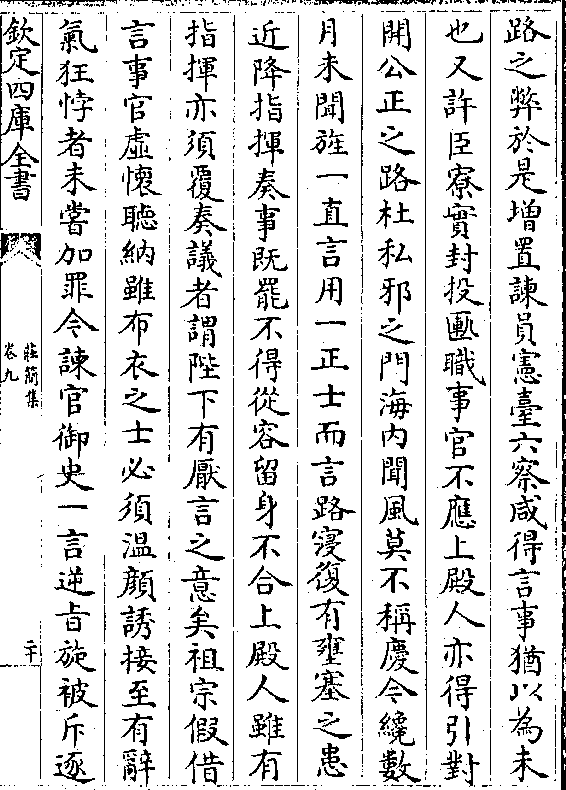 路之弊於是增置諫員憲臺六察咸得言事猶以為未
也又許臣寮實封投匭職事官不應上殿人亦得引對
開公正之路杜私邪之門海内聞風莫不稱慶今纔數
月未聞旌一直言用一正士而言路寖復有壅塞之患
近降指揮奏事既罷不得從容留身不合上殿人雖有
指揮亦須覆奏議者謂陛下有厭言之意矣祖宗假借
言事官虛懷聽納雖布衣之士必須温顔誘接至有辭
氣狂悖者未嘗加罪今諫官御史一言逆旨旋被斥逐
欽定四庫全書
莊簡集
卷九
二十